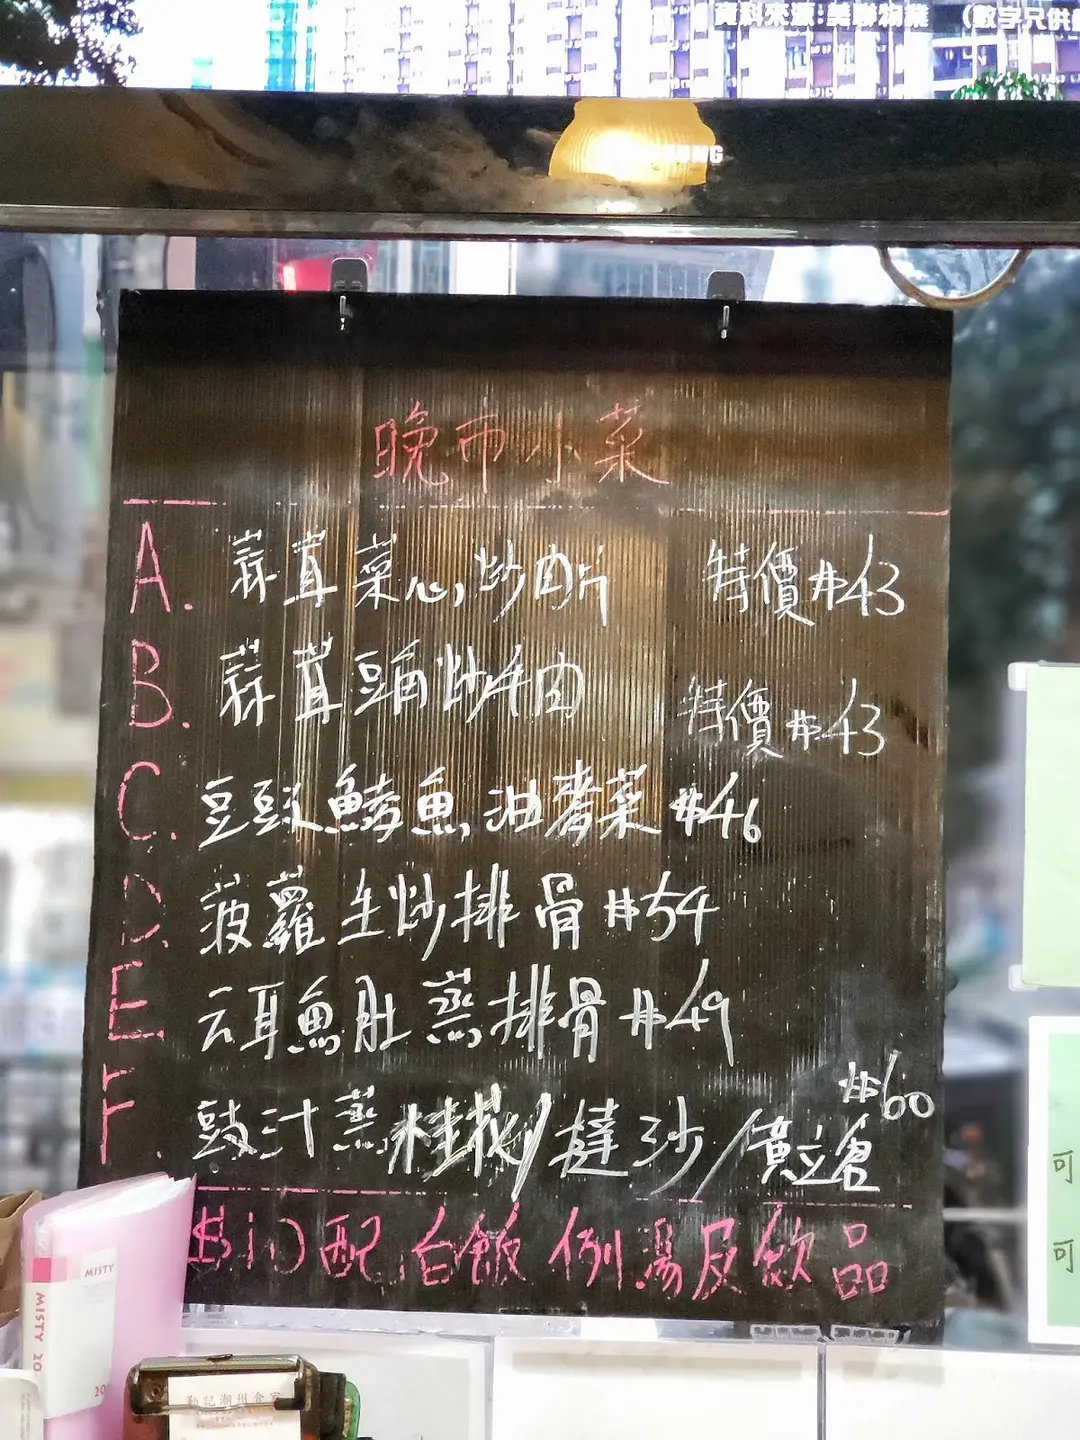 資料來源:美聯物業 (數字只供
晚市小菜
A. 蒜茸菜心炒肉片 特價$43
B. 蒜茸豆角炒牛肉 特價$43
C. 豆豉鯪魚油麥菜 $46
D. 菠蘿生炒排骨 $54
E. 云耳魚肚蒸排骨 $49
F. 豉汁蒸桂花/撻沙/黃立倉 $60
$10配白飯例湯及飲品
MISTY
MISTY 20
20
勤記潮州食家
可
可